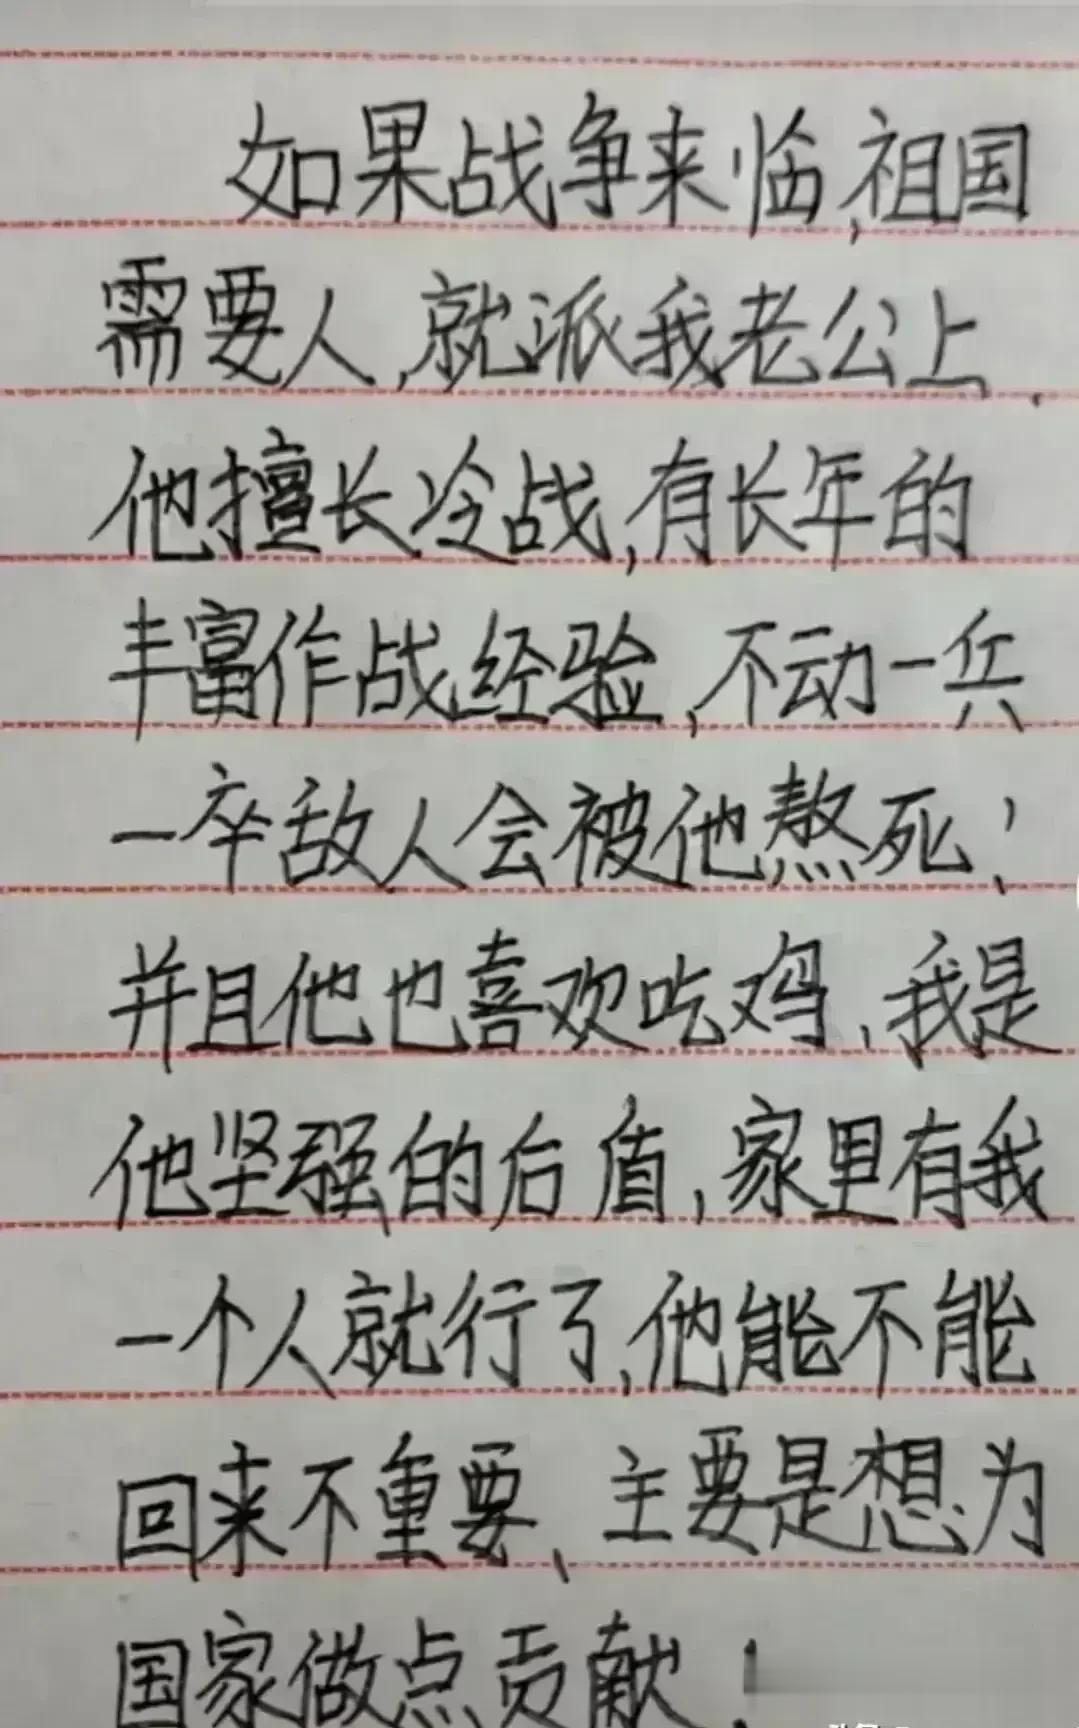 如果战争来临,祖国
需要人,就派我老公上.
他擅长冷战,有长年的
丰富作战经验,不动一兵
一卒敌人会被他熬死!
并且他也喜欢吃鸡,我是
他坚强的后盾,家里有我
一个人就行了,他能不能
回来不重要、主要是想为
国家做点贡献!